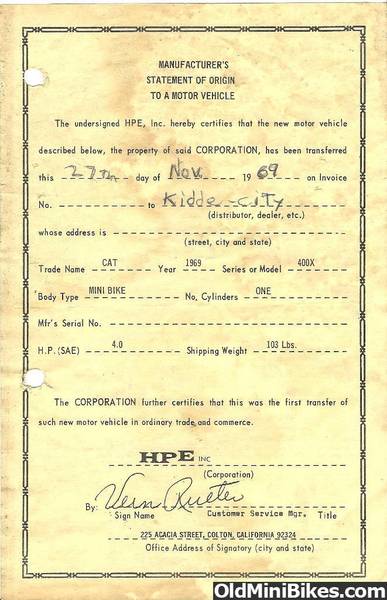 MANUFACTURER'S
STATEMENT OF ORIGIN
TO A MOTOR VEHICLE
The undersigned HPE, Inc. hereby certifies that the new motor vehicle
described below, the property of said CORPORATION, has been transferred
this 27th day of Nov. 1969 on Invoice
No. to Kidde-city
(distributor, dealer, etc.)
whose address is
(street, city and state)
Trade Name CAT Year 1969 Series or Model 400X
Body Type MINI BIKE No. Cylinders ONE
Mfr's Serial No.
H.P. (SAE) 4.0 Shipping Weight 103 Lbs.
The CORPORATION further certifies that this was the first transfer of
such new motor vehicle in ordinary trade and commerce.
HPE INC
(Corporation)
By: Vern Rueter
Sign Name Customer Service Mgr. Title
225 ACACIA STREET, COLTON, CALIFORNIA 92324
Office Address of Signatory (city and state)
OldMiniBikes.com